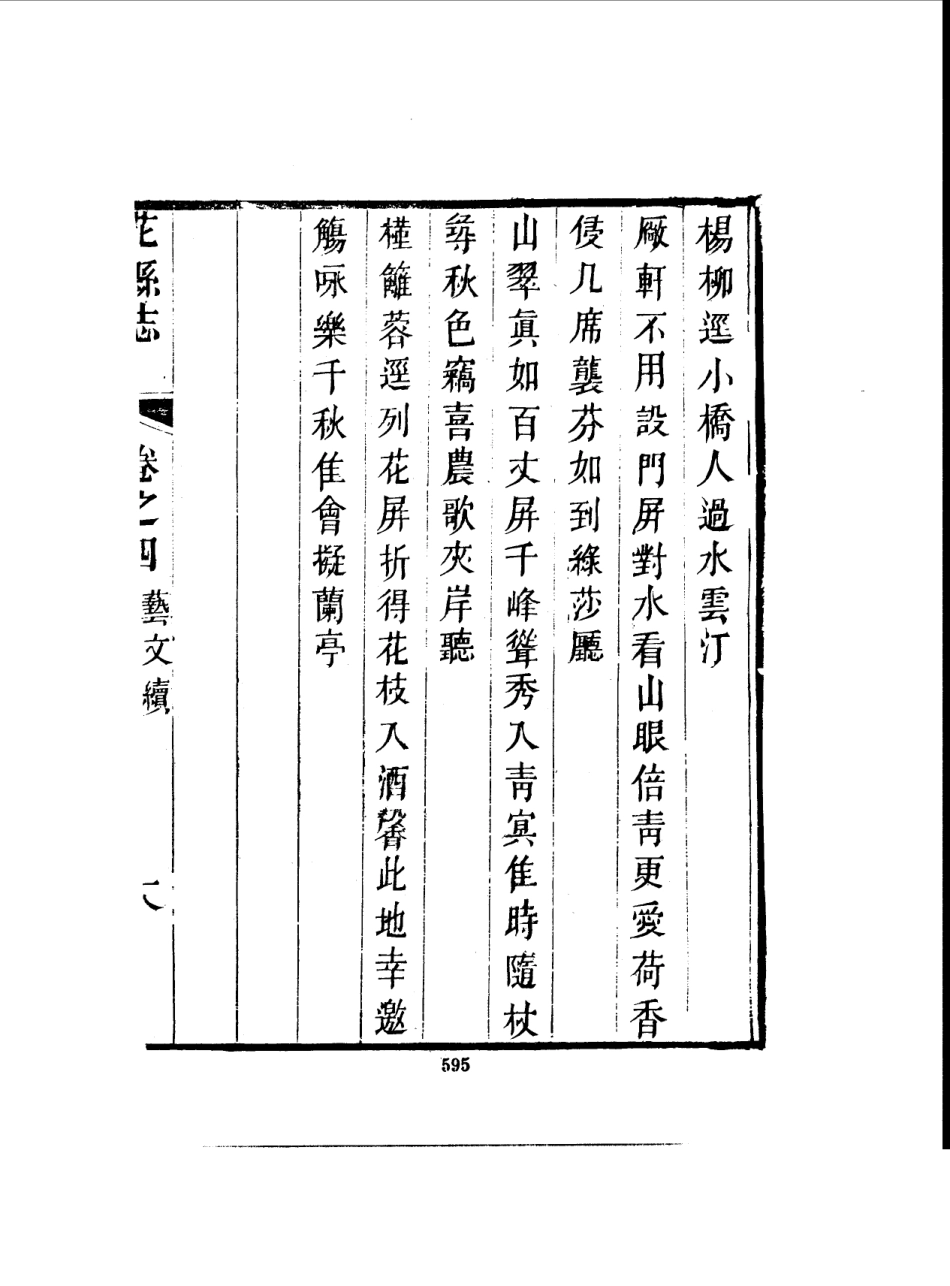 楊柳逕小橋人過水雲汀
厰軒不用設門屏對水看山眼倍靑更愛荷香
侵几席襲芬如到綠莎廳
山翠眞如百丈屏千峰聳秀入靑㝠佳時隨杖
尋秋色竊喜農歌夾岸聽
槿籬蓉逕列花屏折得花枝入酒馨此地幸邀
觴咏樂千秋佳會擬蘭亭
花縣志
卷之四
藝文續
八
595